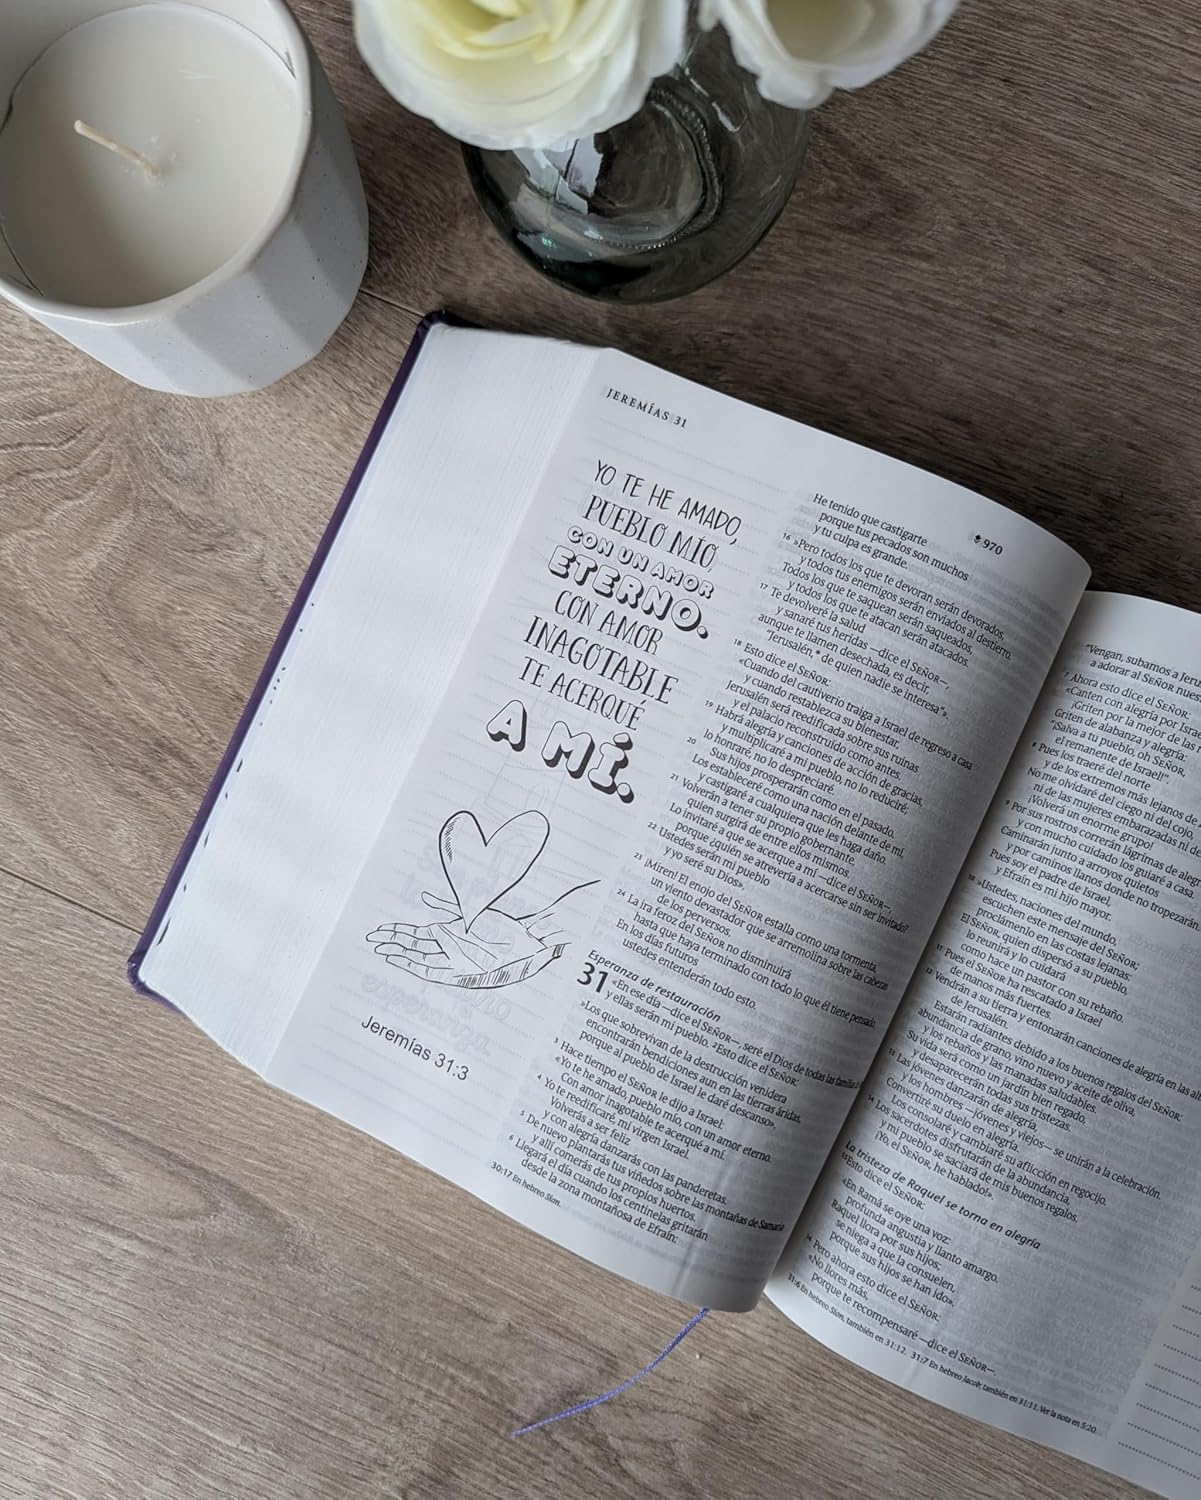 JEREMÍAS 31
970
YO TE HE AMADO,
PUEBLO MÍO,
CON UN AMOR
ETERNO.
CON AMOR
INAGOTABLE
TE ACERQUÉ
A MÍ.
Jeremías 31:3
He tenido que castigarte
porque tus pecados son muchos
y tu culpa es grande.
16 »Pero todos los que te devoran serán devorados,
y todos tus enemigos serán enviados al destierro.
Todos los que te saquean serán saqueados,
y todos los que te atacan serán atacados.
17 Te devolveré la salud
y sanaré tus heridas —dice el SEÑOR—,
aunque te llamen desechada, es decir,
"Jerusalén,* de quien nadie se interesa"».
18 Esto dice el SEÑOR:
«Cuando del cautiverio traiga a Israel de regreso a casa
y cuando restablezca su bienestar,
Jerusalén será reedificada sobre sus ruinas
y el palacio reconstruido como antes.
19 Habrá alegría y canciones de acción de gracias,
y multiplicaré a mi pueblo, no lo reduciré;
lo honraré, no lo despreciaré.
20 Sus hijos prosperarán como en el pasado.
Los estableceré como una nación delante de mí,
y castigaré a cualquiera que les haga daño.
21 Volverán a tener su propio gobernante
quien surgirá de entre ellos mismos.
Lo invitaré a que se acerque a mí —dice el SEÑOR—,
porque ¿quién se atrevería a acercarse sin ser invitado?
22 Ustedes serán mi pueblo
y yo seré su Dios».
23 ¡Miren! El enojo del SEÑOR estalla como una tormenta,
un viento devastador que se arremolina sobre las cabezas
de los perversos.
24 La ira feroz del SEÑOR no disminuirá
hasta que haya terminado con todo lo que él tiene pensado.
En los días futuros
ustedes entenderán todo esto.
Esperanza de restauración
31 «En ese día —dice el SEÑOR—, seré el Dios de todas las familias de
y ellas serán mi pueblo. 2 Esto dice el SEÑOR:
»Los que sobrevivan de la destrucción venidera
encontrarán bendiciones aun en las tierras áridas,
porque al pueblo de Israel le daré descanso».
3 Hace tiempo el SEÑOR le dijo a Israel:
«Yo te he amado, pueblo mío, con un amor eterno.
Con amor inagotable te acerqué a mí.
4 Yo te reedificaré, mi virgen Israel.
Volverás a ser feliz
y con alegría danzarás con las panderetas.
5 De nuevo plantarás tus viñedos sobre las montañas de Samaria
y allí comerás de tus propios huertos.
6 Llegará el día cuando los centinelas gritarán
desde la zona montañosa de Efraín:
30:17 En hebreo Sion.
"Vengan, subamos a Jeru
a adorar al SEÑOR nues
7 Ahora esto dice el SEÑOR:
«Canten con alegría por Israe
¡Griten por la mejor de las
Griten de alabanza y alegría:
"¡Salva a tu pueblo, oh SEÑOR,
el remanente de Israel!".
8 Pues los traeré del norte
y de los extremos más lejanos de
No me olvidaré del ciego ni del cojo,
ni de las mujeres embarazadas ni de
¡Volverá un enorme grupo!
9 Por sus rostros correrán lágrimas de aleg
y con mucho cuidado los guiaré a casa
Caminarán junto a arroyos quietos
y por caminos llanos donde no tropezarán
Pues soy el padre de Israel,
y Efraín es mi hijo mayor.
10 »Ustedes, naciones del mundo,
escuchen este mensaje del SEÑOR;
proclámenlo en las costas lejanas:
El SEÑOR, quien dispersó a su pueblo,
lo reunirá y lo cuidará
como hace un pastor con su rebaño.
11 Pues el SEÑOR ha rescatado a Israel
de manos más fuertes.
12 Vendrán a su tierra y entonarán canciones de alegría en las alt
de Jerusalén.
Estarán radiantes debido a los buenos regalos del SEÑOR:
abundancia de grano, vino nuevo y aceite de oliva,
y los rebaños y las manadas saludables.
Su vida será como un jardín bien regado,
y desaparecerán todas sus tristezas.
13 Las jóvenes danzarán de alegría,
y los hombres —jóvenes y viejos— se unirán a la celebración.
Convertiré su duelo en alegría.
Los consolaré y cambiaré su aflicción en regocijo.
14 Los sacerdotes disfrutarán de la abundancia,
y mi pueblo se saciará de mis buenos regalos.
¡Yo, el SEÑOR, he hablado!».
La tristeza de Raquel se torna en alegría
15 Esto dice el SEÑOR:
«En Ramá se oye una voz:
profunda angustia y llanto amargo.
Raquel llora por sus hijos;
se niega a que la consuelen,
porque sus hijos se han ido».
16 Pero ahora esto dice el SEÑOR:
«No llores más,
porque te recompensaré —dice el SEÑOR—.
31:6 En hebreo Sion; también en 31:12. 31:7 En hebreo Jacob; también en 31:11. Ver la nota en 5:20.